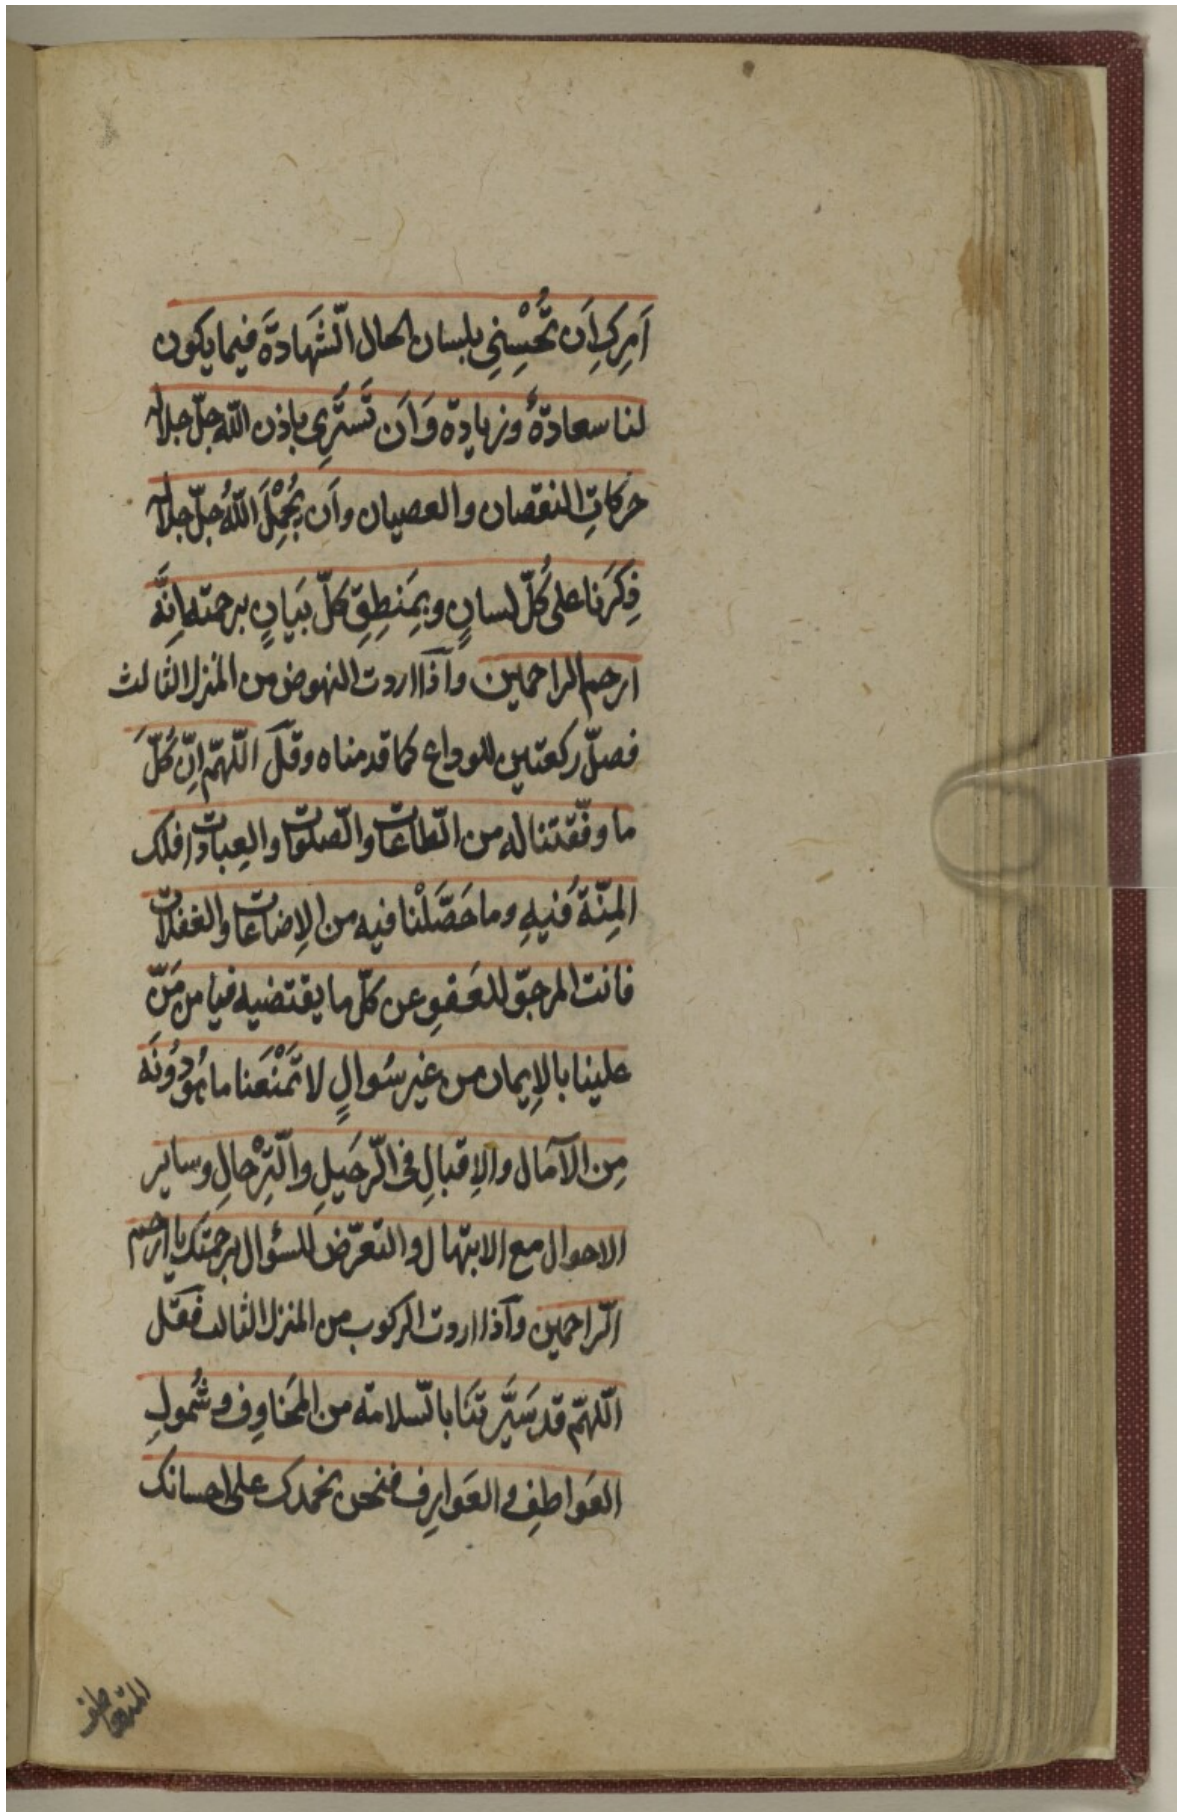 اَمِرِكِ اَن تُحْسِنِي بلسان الحال الشَّهَادَةَ فيما يكون
لنا سعادةً وزيادة وَاَن تَستُرِي باذن الله جلّ جلاله
حركاتِ النقصان والعصيان واَن يُجْمِلَ اللهُ جلّ جلاله
ذِكرَنا على كُلّ لسانٍ وبِمَنطِقِ كلّ بَيَانٍ برحمته اِنّه
ارحم الراحمين واذا اردت النهوض من المنزل الثالث
فصلّ ركعتين للوداع كما قدمناه وقل اللّهمّ اِنّ كُلَّ
ما وفّقتنا له من الطّاعات والصّلوات والعِبادات فلك
المِنّة فيهِ وما حَصَّلْنا فيه من الاِضاعات والغفلات
فانت المرجوّ للعَفوِ عن كلّ ما يقتضيه فيا من مَنّ
علينا بالاِيمان من غير سُوالٍ لا تَمْنَعنا ما هُو دُونَه
مِن الآمال والاِقبالِ فى الرّحيلِ والتّرْحالِ وساير
الاحوال مع الابتهال والتعرّض للسؤال برحمتك يا ارحم
الرّاحمين واذا اردت الركوب من المنزل الثالث فقل
اللّهمّ قد سَيَّرتَنَا بالسّلامة من المَخاوِف وشُمولِ
العَواطِفِ والعَوارِف فنحن نحمدك على احسانك
المتعاطف